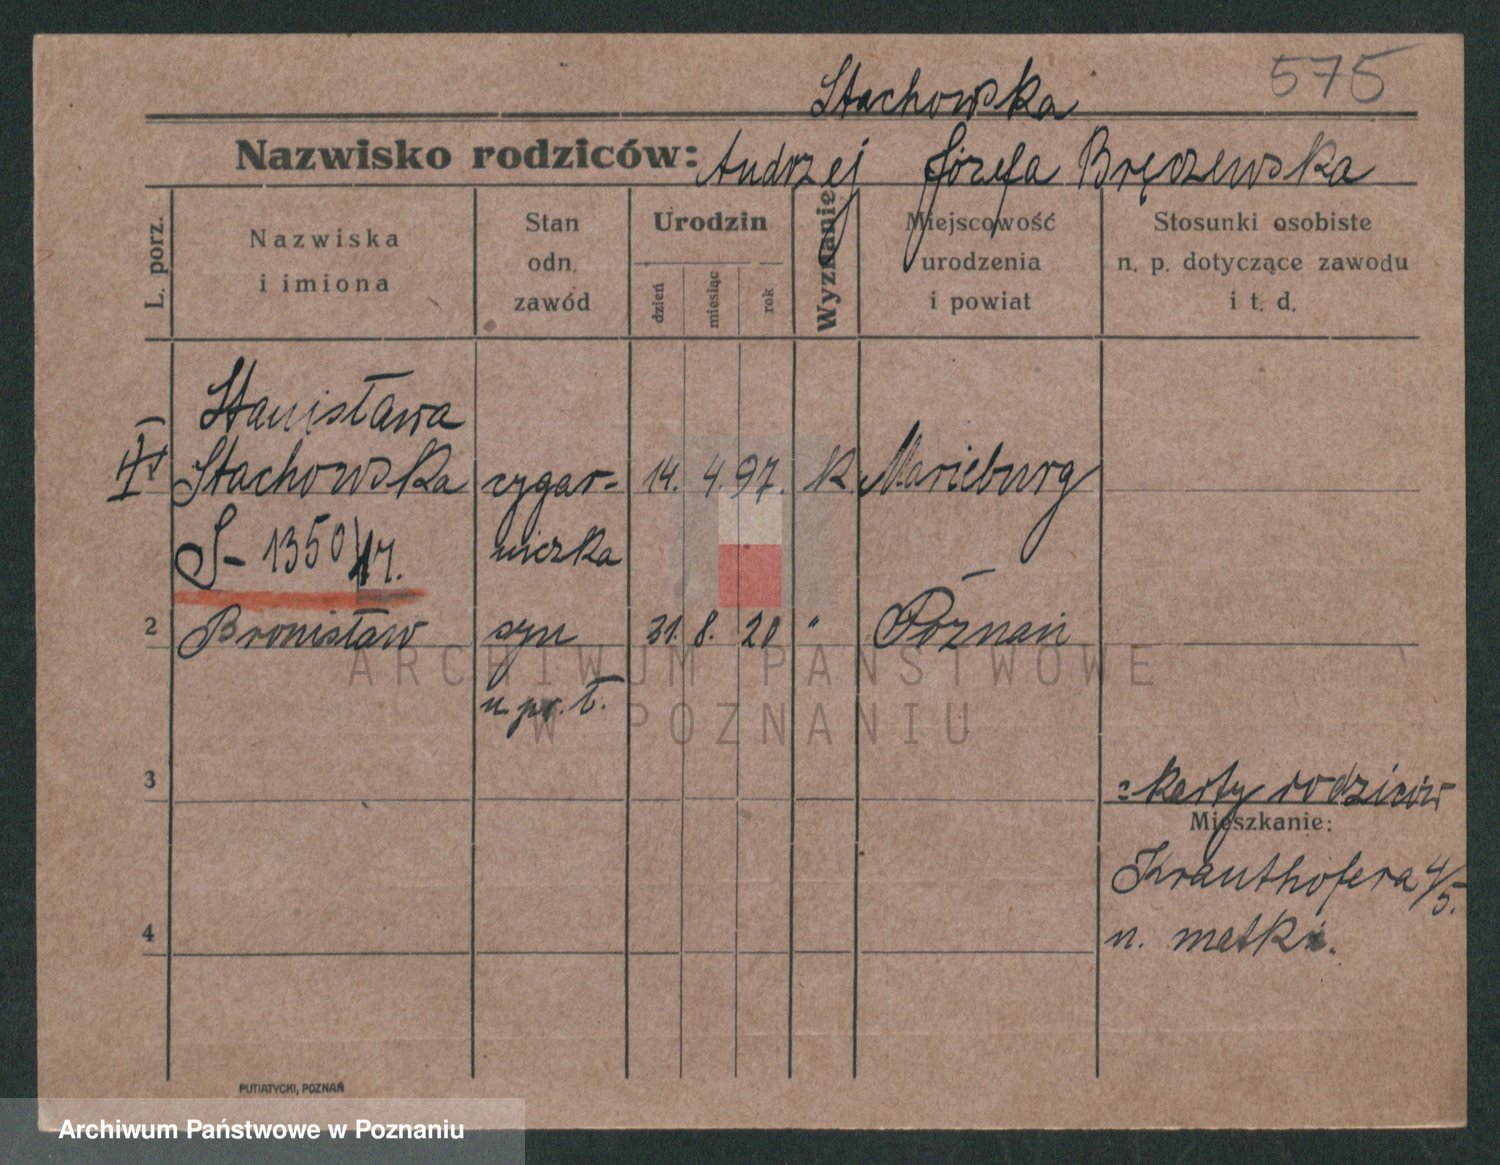 575
Stachowska
Nazwisko rodziców: Andrzej Józefa Bręczewska
L. porz.
Nazwiska
i imiona
Stan
odn.
zawód
Urodzin
dzień
miesiąc
rok
Wyznanie
Miejscowość
urodzenia
i powiat
Stosunki osobiste
n. p. dotyczące zawodu
i t. d.
Stanisława
Stachowska cygar- 14. 4. 97. k. Marieburg
S-1350 niczka
2 Bronisław syn 31. 8. 20 " Poznań
n. pr. ł.
ARCHIWUM PAŃSTWOWE
W POZNANIU
3
z karty rodziców
Mieszkanie:
Krauthofera 4/5.
4
u. matki.
PUTIATYCKI, POZNAŃ
Archiwum Państwowe w Poznaniu